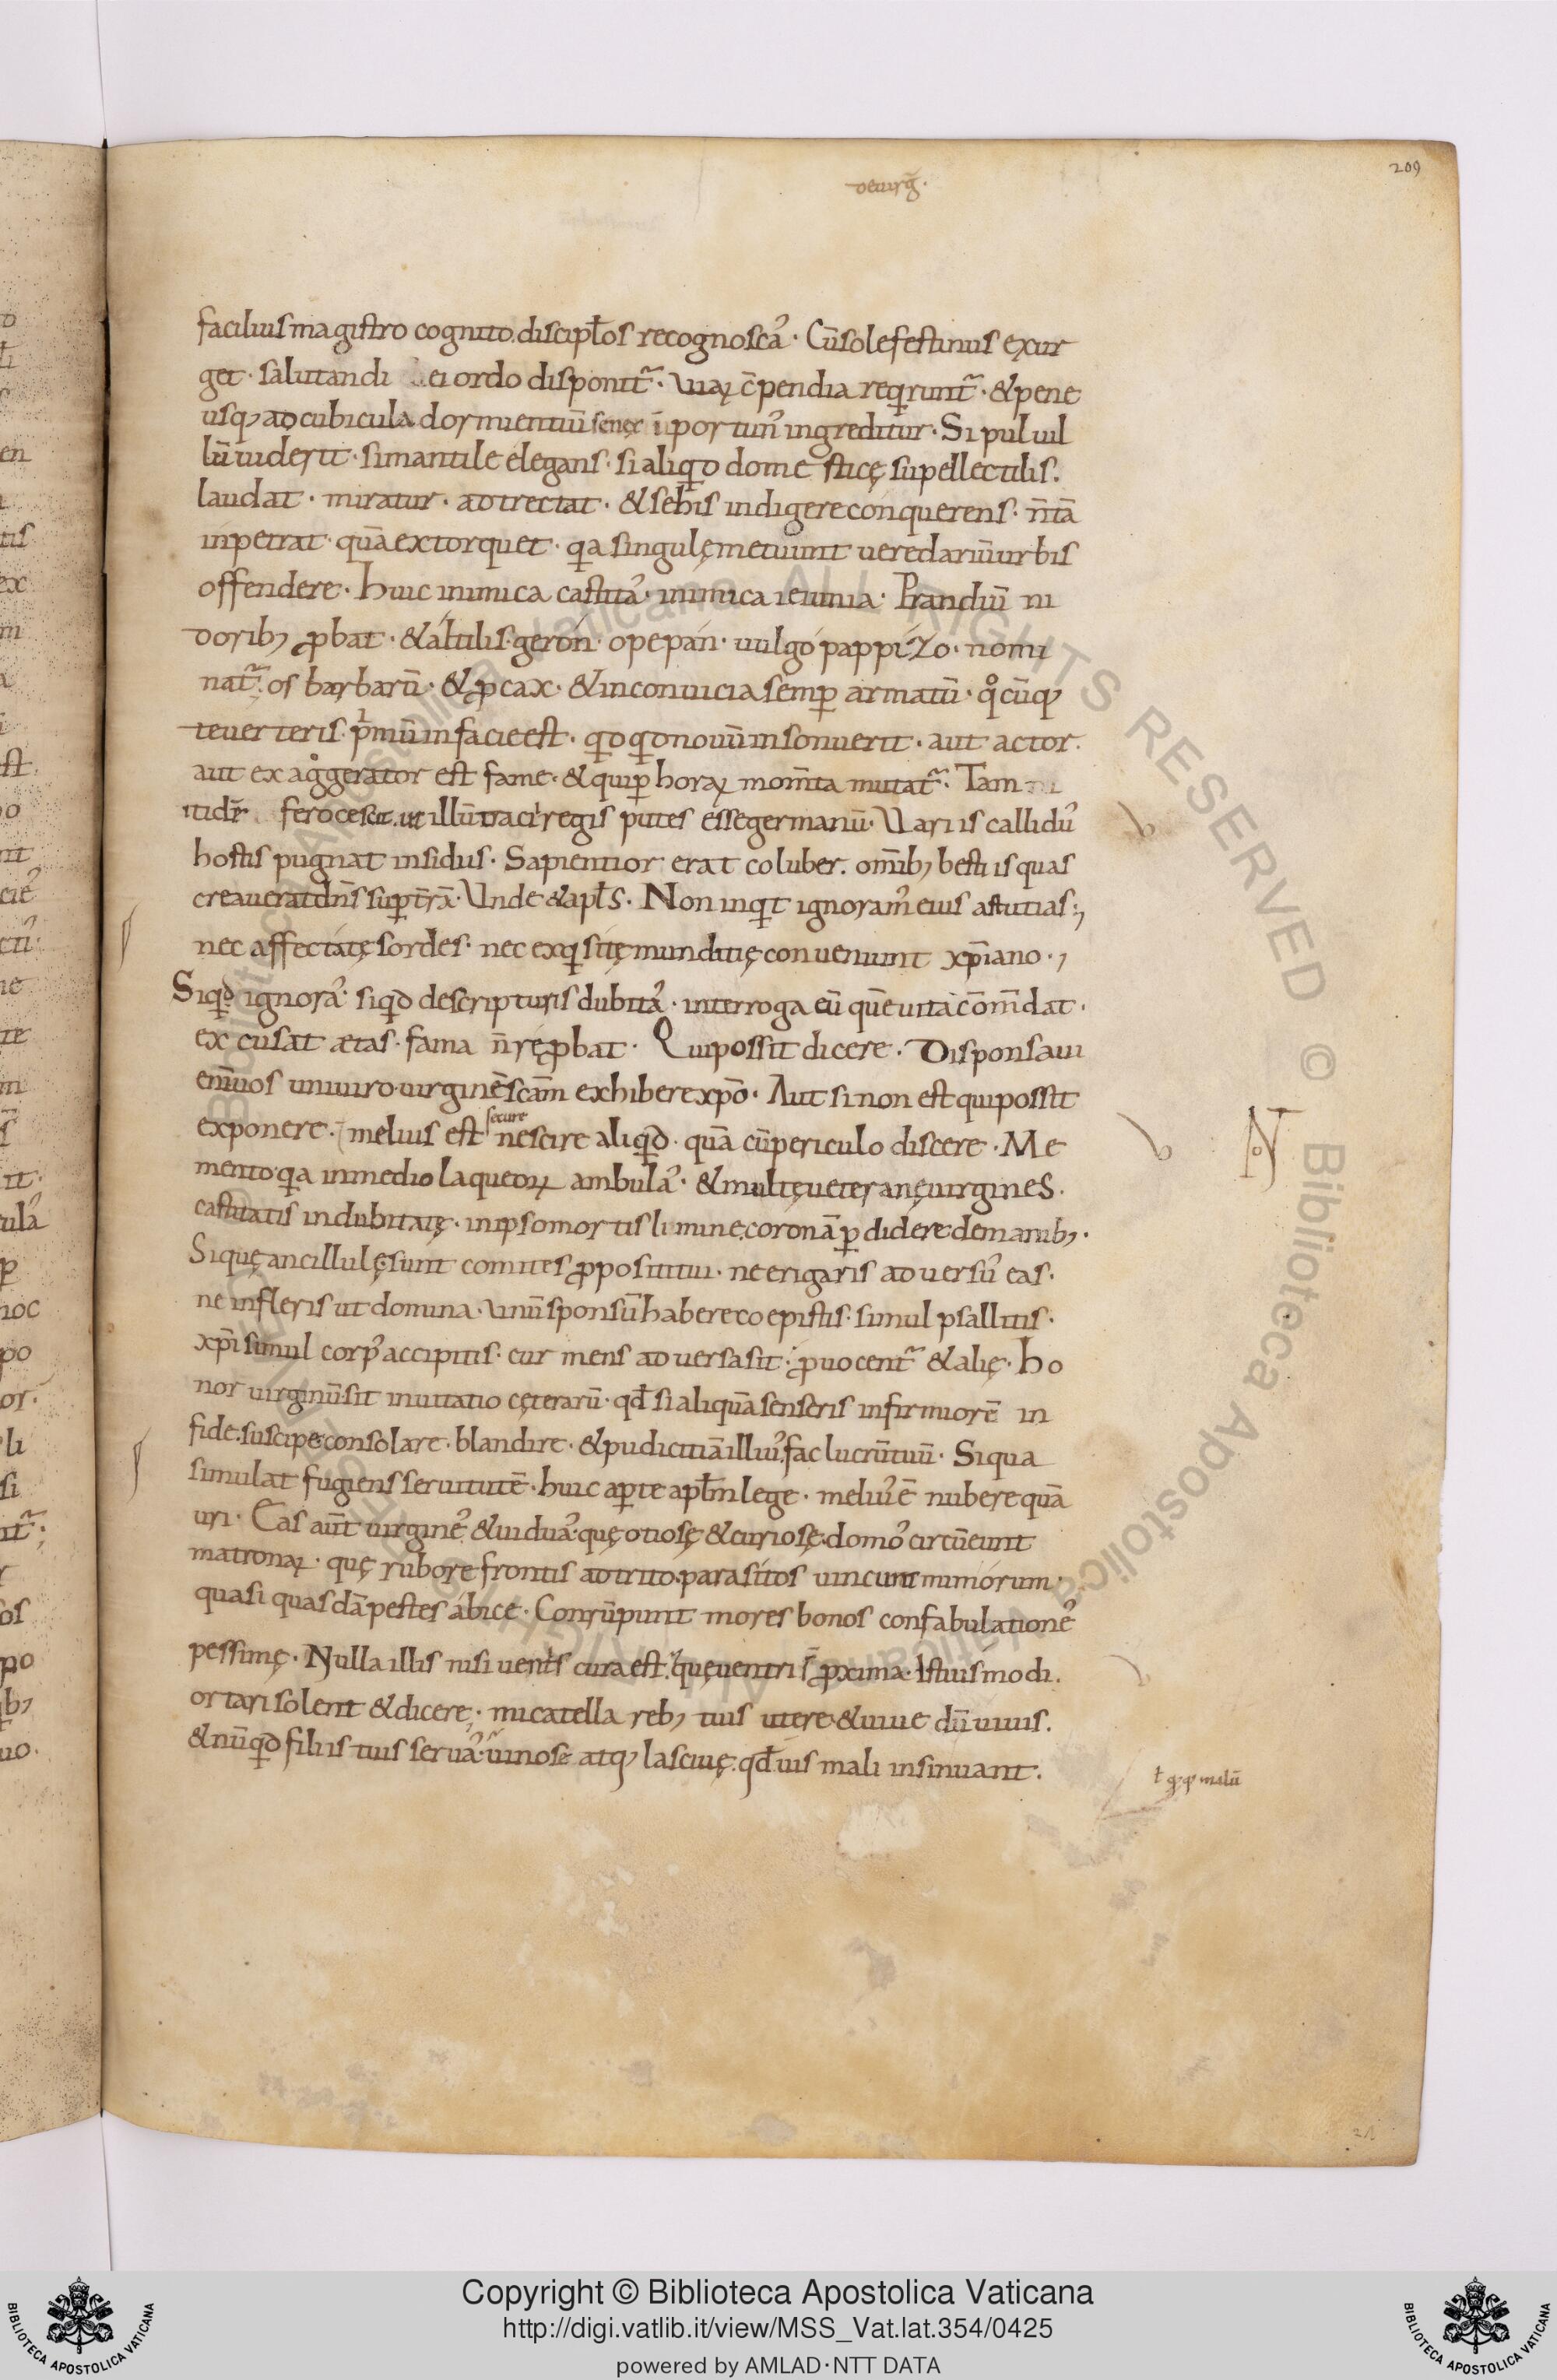 209
deuirḡ.
faciliusmagistro cognito.discipłos recognoscaꝰ. Cūsolefestinus exur
get. salutandi ei ordo disponit᷑. uiaꝝ c̄pendia reqͥrunt᷑. &pene
usqꝫ ad cubicula dormientiū senex īportunꝰ ingreditur. Si puluil
lū uiderit. simantile elegans. si aliqͥd domesticę supellectilis.
laudat. miratur. adtrectat. &sehis indigere conquerens. n̄tā
inpetrat. quā extorquet. qͥa singulę metuunt ueredariūurbis
offendere. huic inimica castitaꝰ. inimica ieiunia. Prandiū ni
doribꝫ ꝓbat. &altilis.geron. opepan. uulgo pappizo. nomi
nat᷑. os barbarū. &ꝓcax. &inconuicia semꝑ armatū. qͦcūqꝫ
teuerteris. pͥmūinfacieest. qͥdqͥdnouūinsonuerit. aut actor.
aut exaggerator est fame. &quiꝑ horaꝝ mom̄ta mutat᷑. Tam
itidē feroceſut illūtraciregis putes essegermanū. Uariis callidꝰ
hostis pugnat insidiis. Sapientior erat coluber. om̄ibꝫ bestiis quas
creaueratdn̄s suꝑt̄rā. Unde &apłs. Non inqͥt ignoramꝰ eius astutias;
nec affectatę sordes. nec exqͥsitę munditię conueniunt xp̄iano.
Siqͥd ignoraꝰ. siqͥd descripturis dubitaꝰ. interroga eū quē uita cōm̄dat.
excusat ætas. fama n̄ reꝓbat. Qui possit dicere. Disponsaui
enīuos uniuiro.uirginē sc̄am exhiberexp̄o. Aut si non est quipossit
exponere. melius est secure nescire aliqͥd. quā cūpericulo discere. Me
mento.qͥa inmedio laqueoꝝ ambulaꝰ. &multę ueteranę uirgineS.
castitatis indubitatę. inipsomortis limine.coronā ꝑdidere demanibꝫ.
Siquę ancillulę sunt comites ꝓpositi tui. ne erigaris aduersū eas.
ne infleris ut domina. Unū sponsū habere coepistis. simul psallitis.
xp̄i simul corpꝰ accipitis. cur mens aduersa sit. ꝓuocent᷑ &alię. ho
nor uirginū.sit inuitatio cęterarū. qđ si aliquā senseris infirmiorē in
fide.suscipe.consolare. blandire. &pudicitiā illiuꝰ.fac lucrūtuū. Siqua
simulat fugiens seruitutē. huic aꝑte apłm lege. meliuꝰ ē nubere quā
uri. Eas aūt uirgineꝰ &uiduaꝰ.quę otiosę &curiosę.domoꝰ circūeunt
matronaꝝ. quę rubore frontis adtrito.parasitos uincunt mimorum.
quasi quasdā pestes abice. Conrūpunt mores bonos confabulationeꝰ
pessimę. Nulla illis nisi uentris cura est.&quęuentri s̄ ꝓxima. Istiusmodi.
ortari solent &dicere. mi catella rebꝫ tuis utere.&uiue dū uiuis.
&nūqͥd filiis tuis seruaꝰ. uinose atqꝫ lasciuę. qđuis mali insinuant.
malū
Copyright © Biblioteca Apostolica Vaticana
http://digi.vatlib.it/view/MSS_Vat.lat.354/0425
powered by AMLAD·NTT DATA
BIBLIOTECA APOSTOLICA VATICANA
BIBLIOTECA APOSTOLICA VATICANA